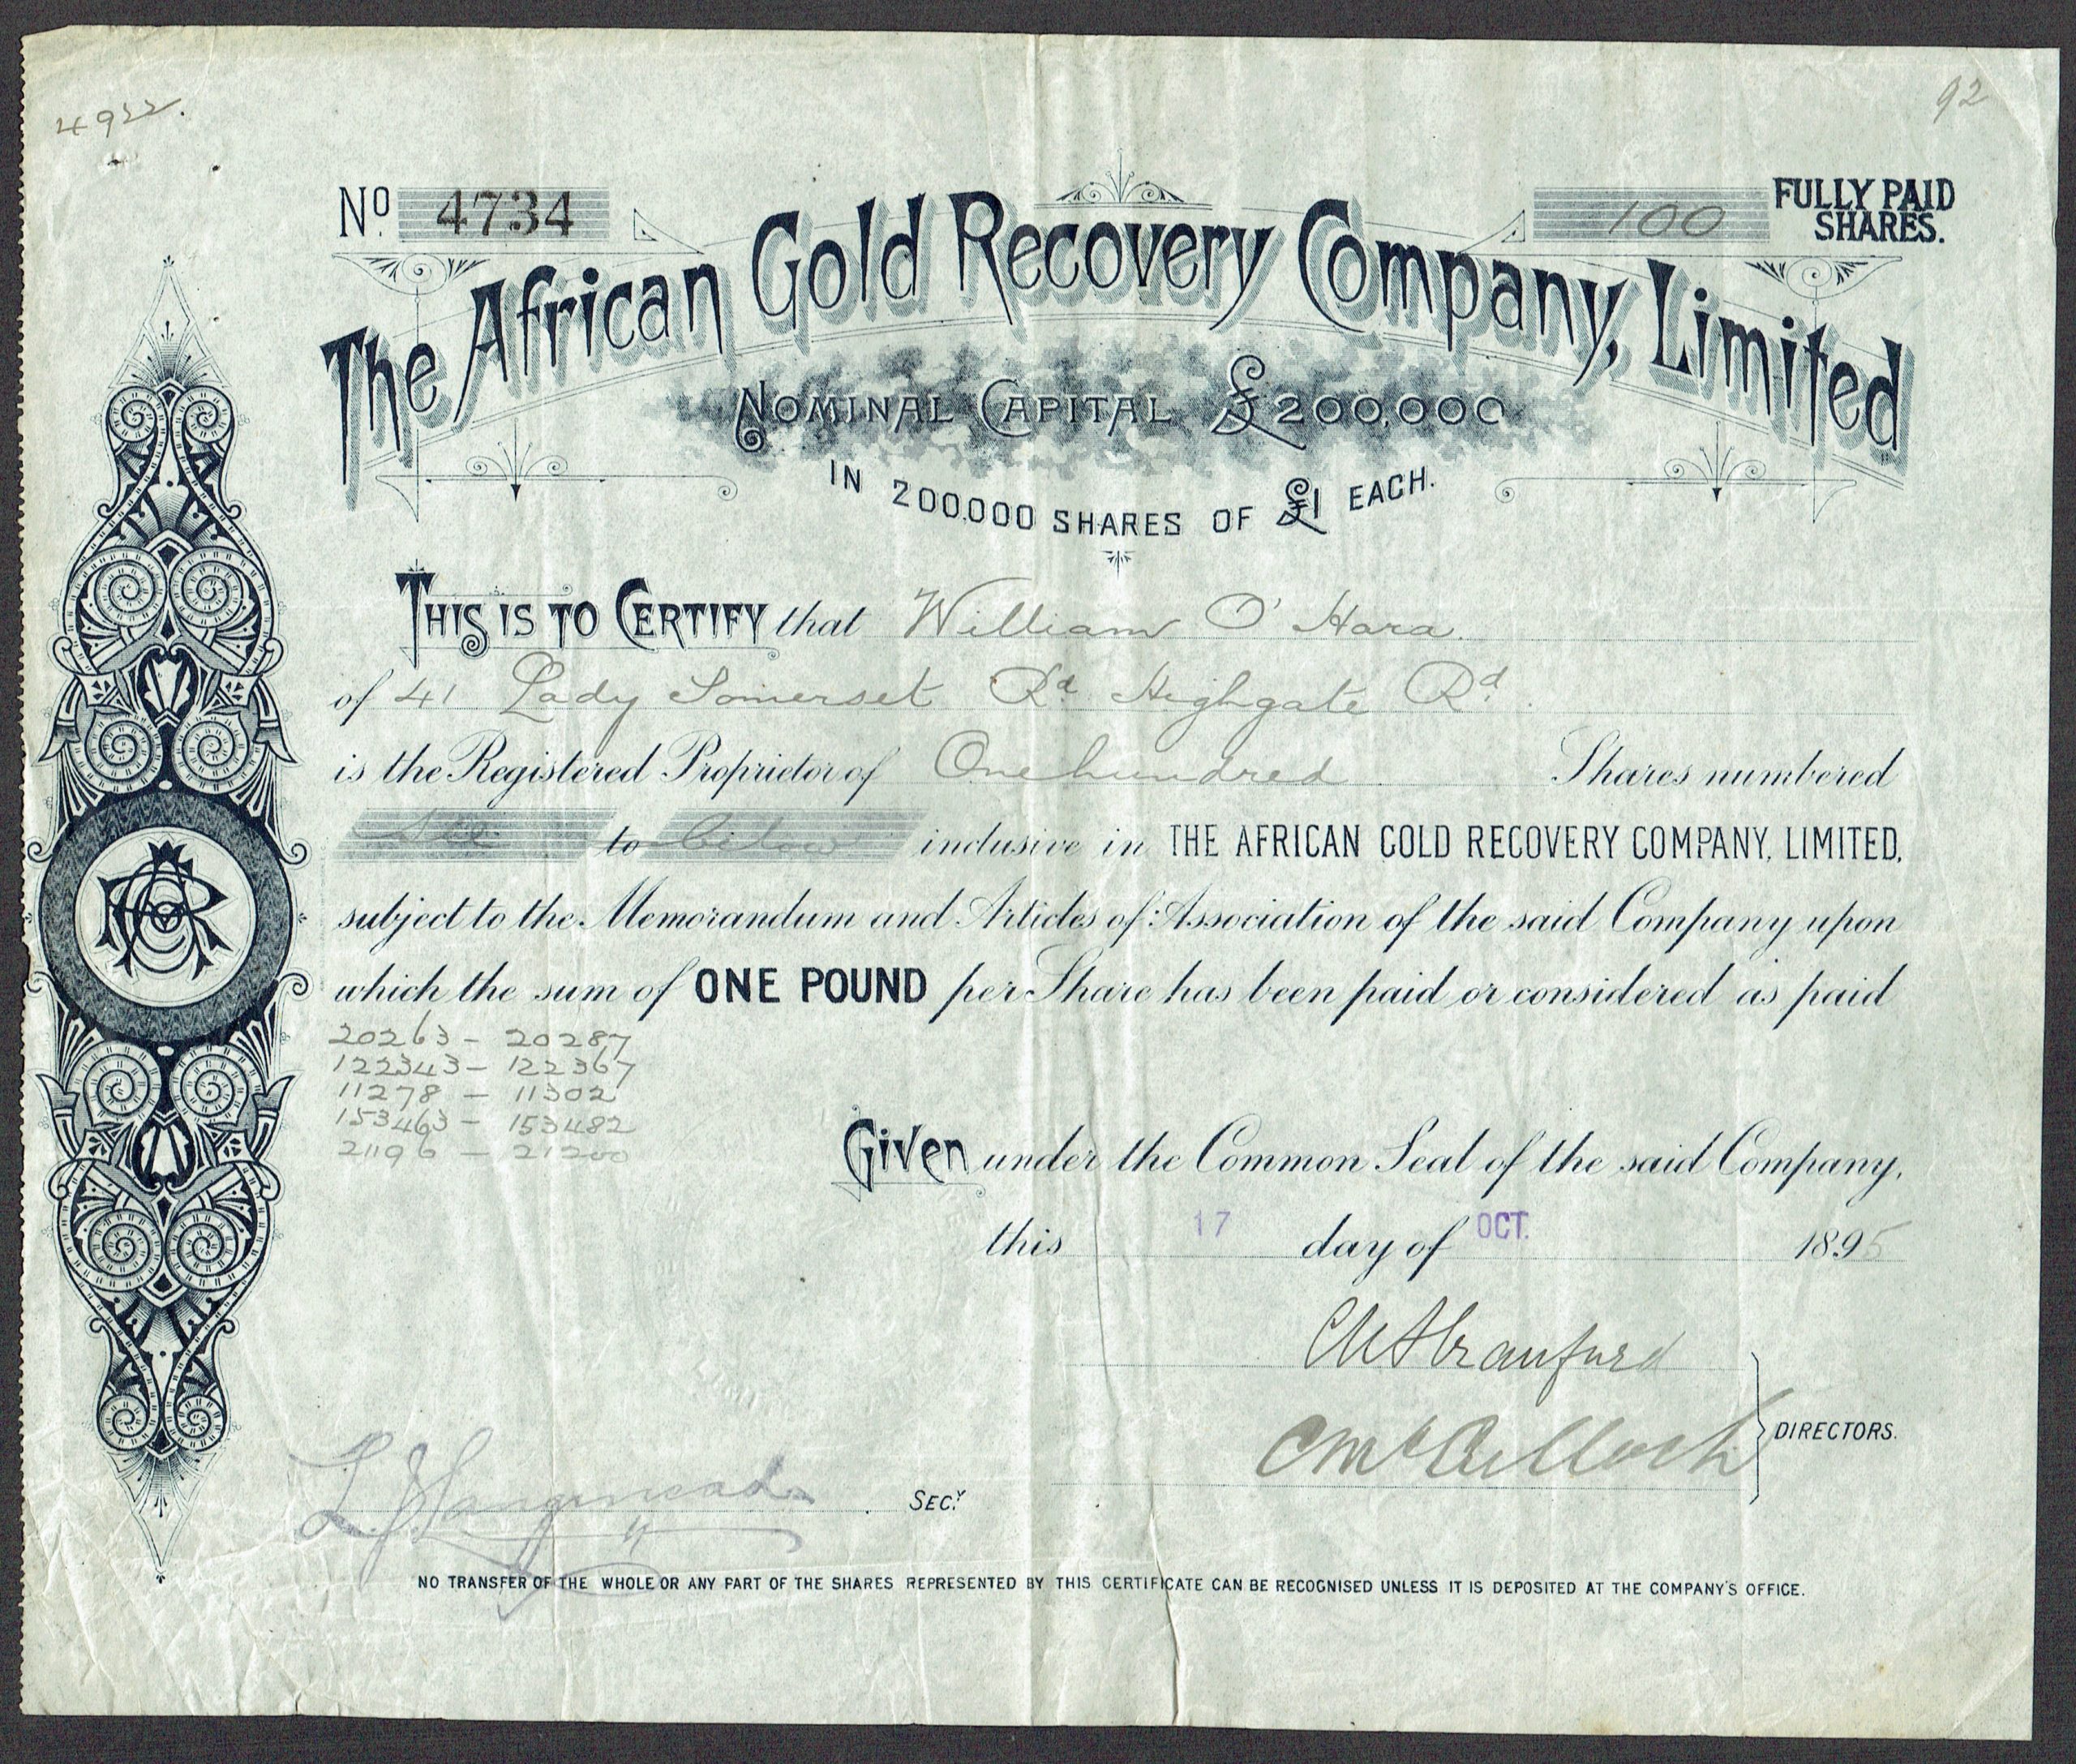 4922.
92
No. 4734
100 FULLY PAID SHARES.
The African Gold Recovery Company, Limited
NOMINAL CAPITAL £200,000
IN 200,000 SHARES OF £1 EACH.
THIS IS TO CERTIFY that William O'Hara
of 41 Lady Somerset Rd. Highgate Rd.
is the Registered Proprietor of One hundred Shares numbered
See to below inclusive in THE AFRICAN GOLD RECOVERY COMPANY, LIMITED,
subject to the Memorandum and Articles of Association of the said Company upon
which the sum of ONE POUND per Share has been paid or considered as paid
20263 - 20287
122343 - 122367
11278 - 11302
153463 - 153482
21196 - 21200
Given under the Common Seal of the said Company,
this 17 day of OCT. 1895
C McCulloch
DIRECTORS.
SECY
NO TRANSFER OF THE WHOLE OR ANY PART OF THE SHARES REPRESENTED BY THIS CERTIFICATE CAN BE RECOGNISED UNLESS IT IS DEPOSITED AT THE COMPANY'S OFFICE.